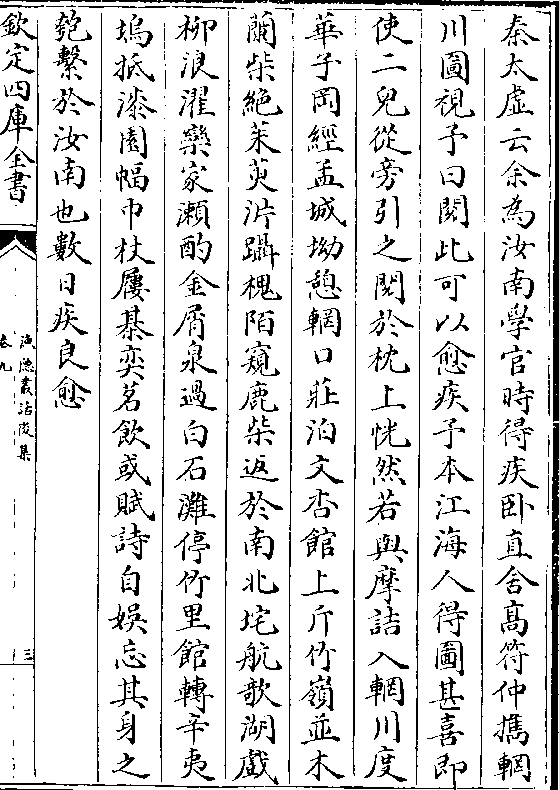 秦太虛云余為汝南學官時得疾卧直舍髙符仲攜輞
川圖視予曰閱此可以愈疾予本江海人得圖甚喜即
使二兒從旁引之閱於枕上恍然若與摩詰入輞川度
華子岡經孟城坳憩輞口莊泊文杏館上斤竹嶺並木
蘭柴絶茱萸沜躡槐陌窺鹿柴返於南北垞航欹湖戲
柳浪濯欒家瀨酌金屑泉過白石灘停竹里館轉辛夷
塢抵漆園幅巾杖屨棊奕茗飲或賦詩自娛忘其身之
匏繫於汝南也數日疾良愈
欽定四庫全書
漁隱叢話後集
卷九
三